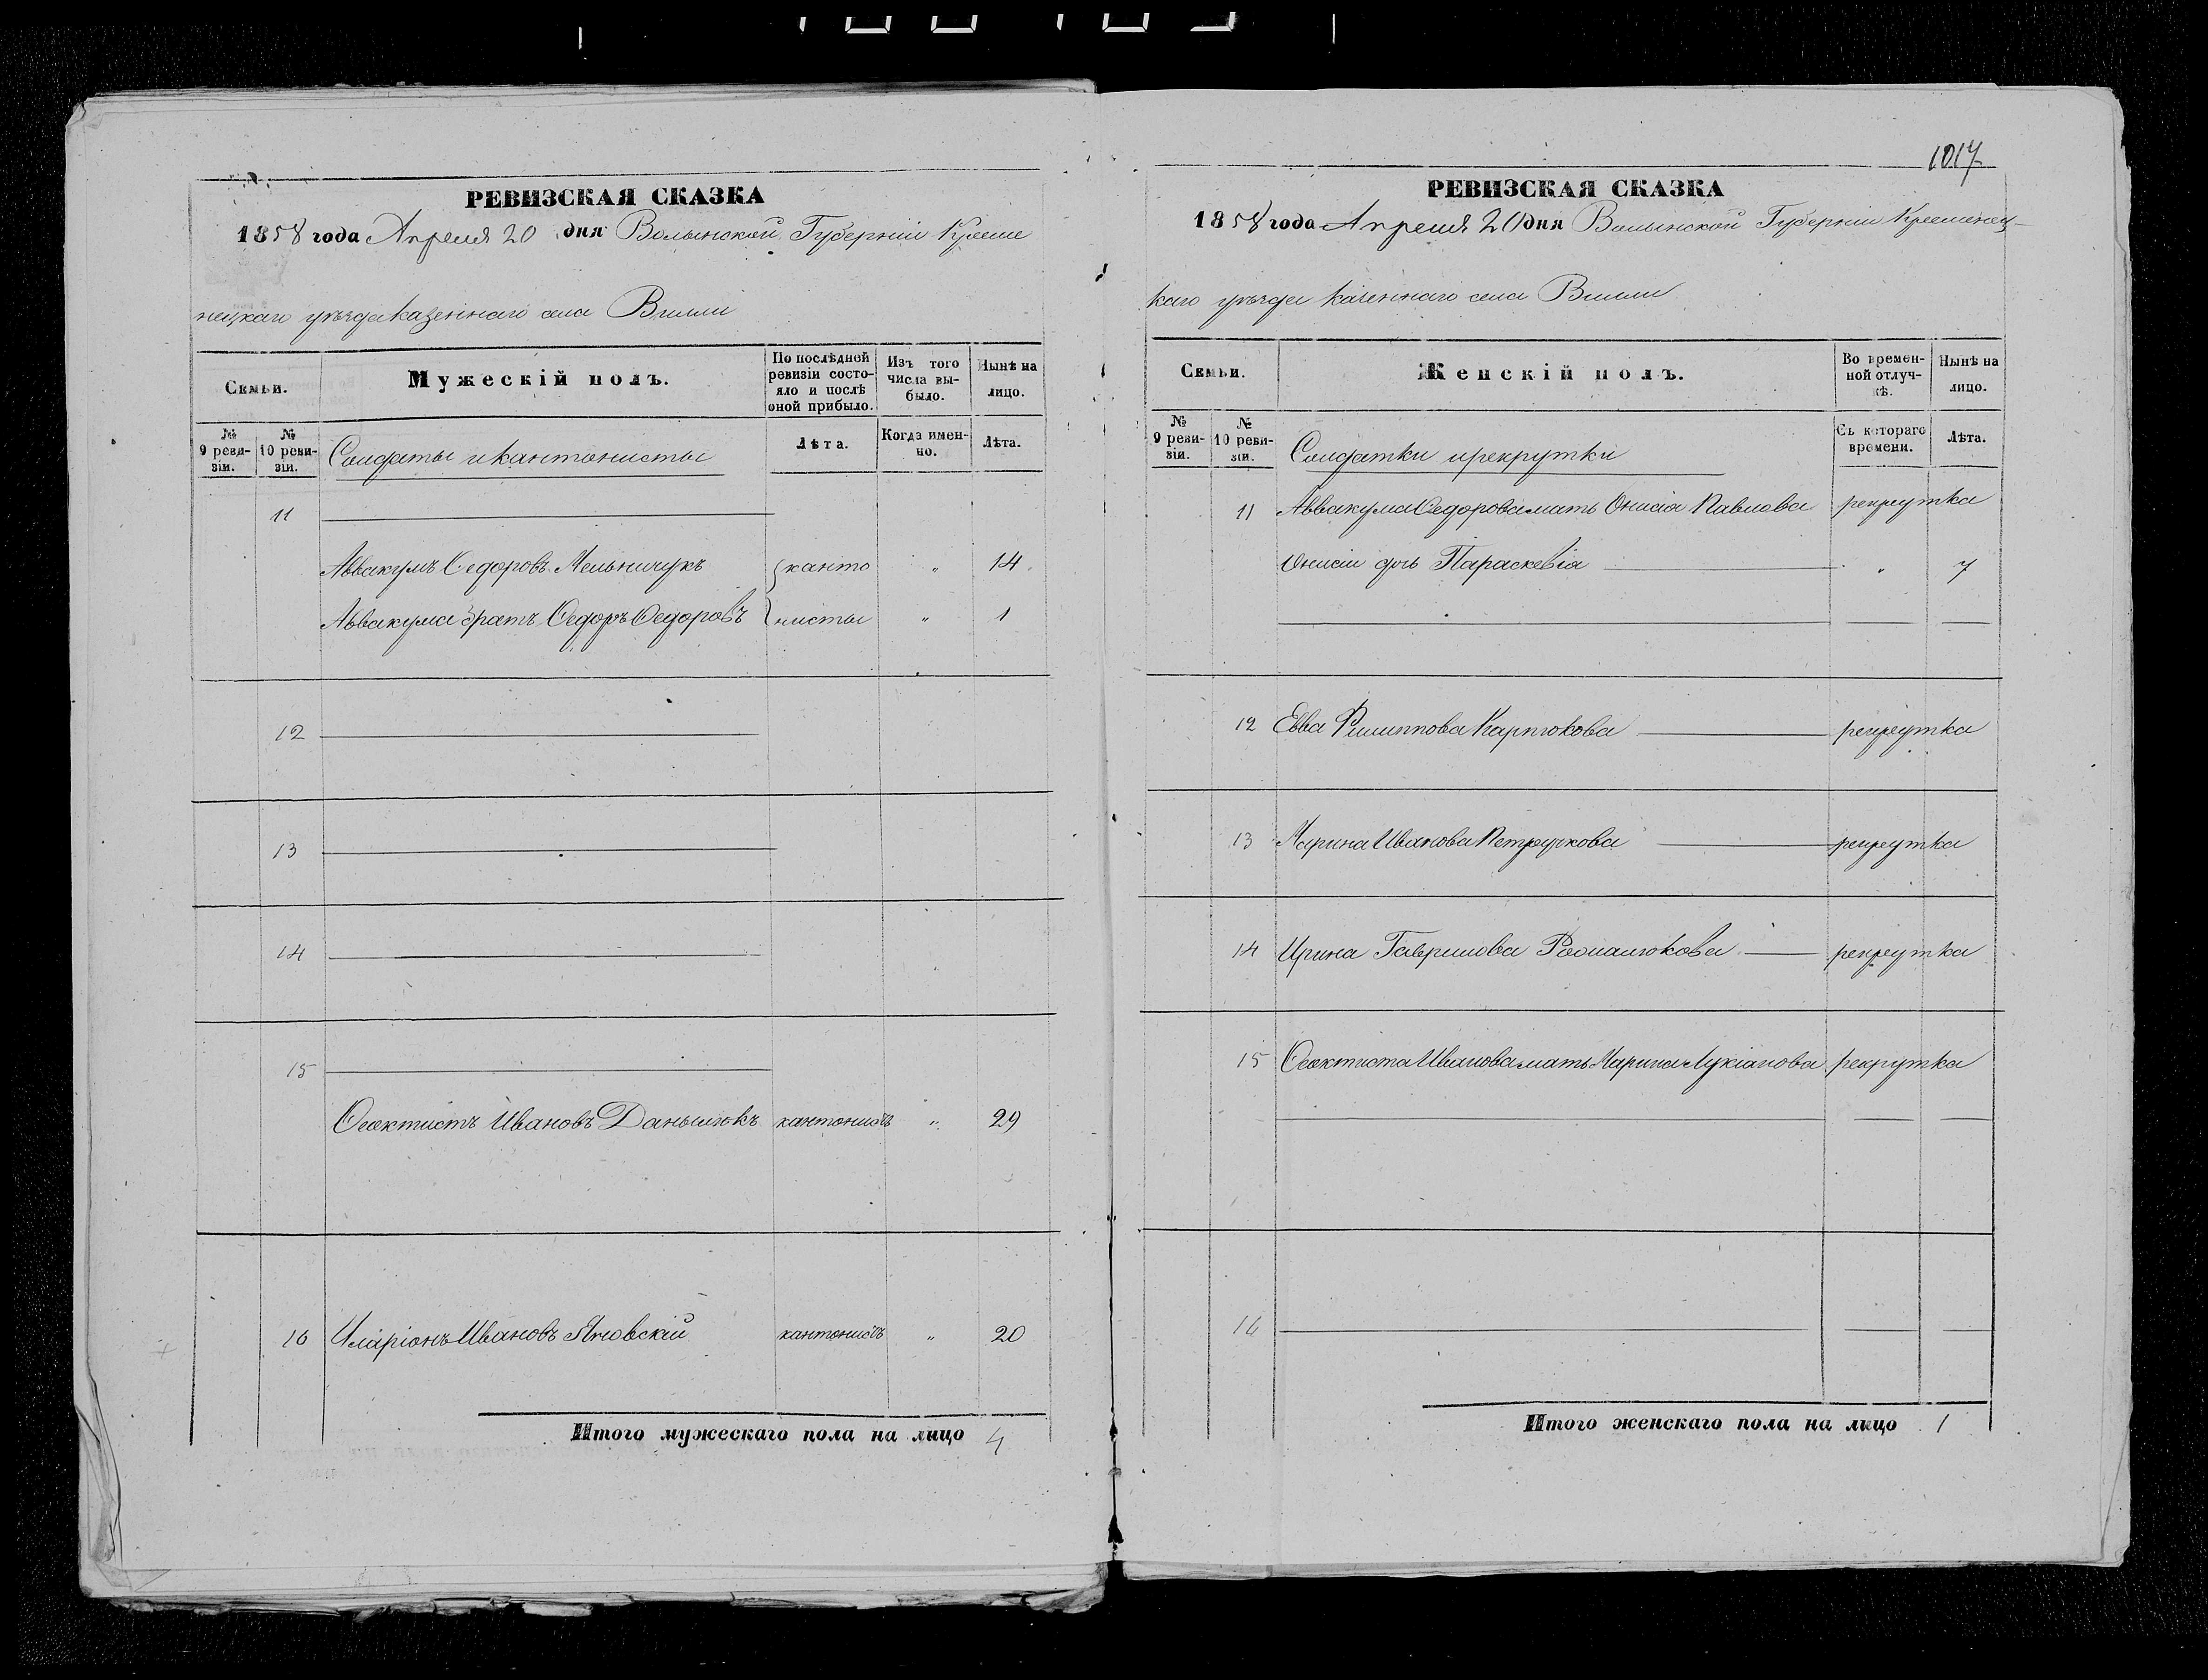 РЕВИЗСКАЯ СКАЗКА
1858 года Апреля 20 дня Волынской Губерніи Креме
нецкаго уѣзда казеннаго села Вилли
Семьи.
Мужескій полъ.
По послѣдней ревизіи состо-
яло и послѣ
оной прибыло.
Изъ того
числа вы-
было.
Нынѣ на
лицо.
№
9 реви-
зіи.
№
10 реви-
зіи.
Солдаты и кантонисты
Лѣта.
Когда имен-
но.
Лѣта.
11
Аввакумъ Ѳедоровъ Мельничукъ канто „ 14
Аввакума братъ Ѳедоръ Ѳедоровъ нисты „ 1
12
13
14
15
Ѳеоктистъ Ивановъ Данылюкъ кантонистъ „ 29
16 Иларіонъ Ивановъ Яновскій кантонистъ „ 20
Итого мужескаго пола на лицо 4
1017
РЕВИЗСКАЯ СКАЗКА
1858 года Апреля 20 дня Волынской Губерніи Кременец-
каго уѣзда казеннаго села Вилли
Семьи.
Женскій полъ.
Во времен-
ной отлуч-
кѣ.
Нынѣ на
лицо.
№
9 реви-
зіи.
№
10 реви-
зіи.
Солдатки и рекрутки
Съ котораго
времени.
Лѣта.
11 Аввакума Ѳедорова мать Онисія Павлова рекрутка
Онисіи дочь Параскевія „ 7
12 Евва Филиппова Карпюкова рекрутка
13 Марина Иванова Петручкова рекрутка
14 Ирина Гаврилова Романюкова рекрутка
15 Ѳеоктиста Иванова мать Марина Лукіанова рекрутка
16
Итого женскаго пола на лицо 1